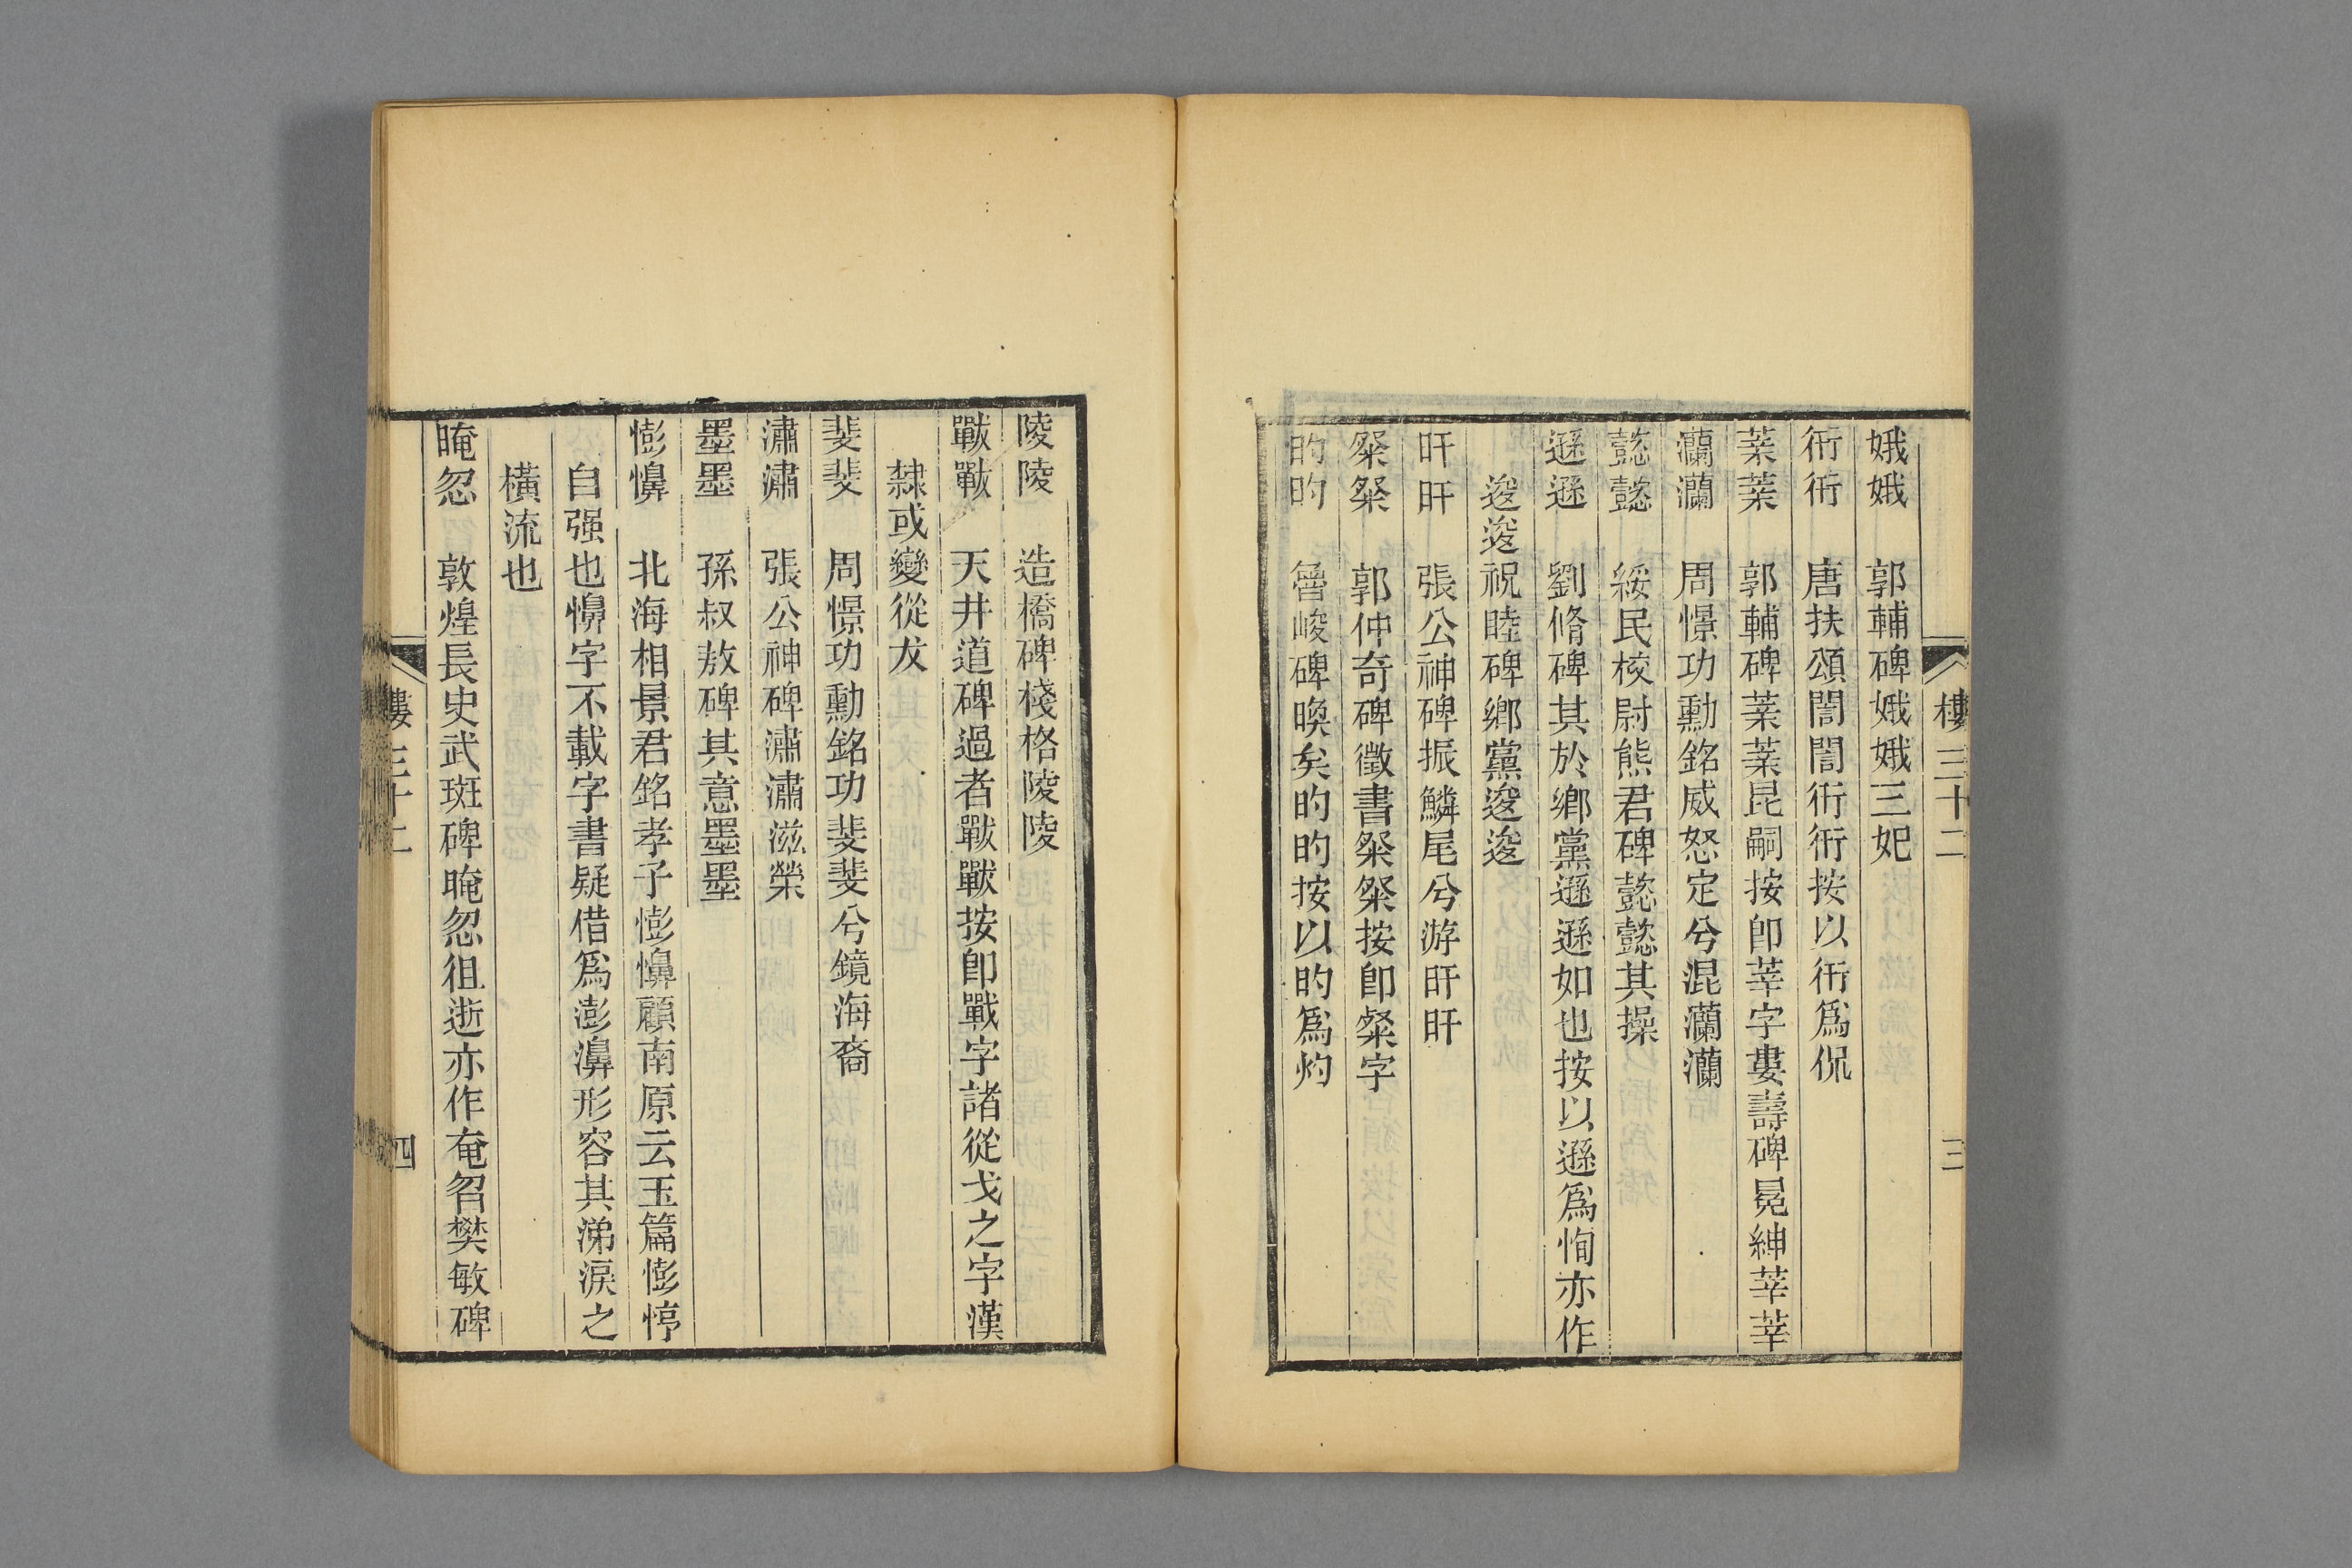 樓三十二
三
娥娥　郭輔碑娥娥三妃
衎衎　唐扶頌誾誾衎衎按以衎爲侃
葈葈　郭輔碑葈葈昆嗣按卽莘字婁壽碑冕紳莘莘
灡灡　周憬功勳銘威怒定兮混灡灡
懿懿　綏民校尉熊君碑懿懿其操
遜遜　劉脩碑其於鄉黨遜遜如也按以遜爲恂亦作
逡逡祝睦碑鄉黨逡逡
旰旰　張公神碑振鱗尾兮游旰旰
粲粲　郭仲奇碑徵書粲粲按卽粲字
旳旳　魯峻碑晚矣旳旳按以旳爲灼
陵陵　造橋碑棧格陵陵
戰戰　天井道碑過者戰戰按卽戰字諸從戈之字漢
隸或變從犮
斐斐　周憬功勳銘功斐斐兮鏡海裔
潚潚　張公神碑潚潚滋榮
墨墨　孫叔敖碑其意墨墨
憉懪　北海相景君銘孝子憉懪顧南原云玉篇憉悙
自强也懪字不載字書疑借爲澎濞形容其涕淚之
橫流也
晻忽　敦煌長史武斑碑晻忽徂逝亦作奄曶樊敏碑
樓三十二
四